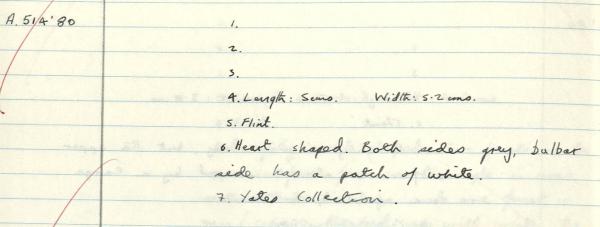 A.514'80
1.
2.
3.
4. Length: 5cms. Width: 5.2 cms.
5. Flint.
6. Heart shaped. Both sides grey, bulbar
side has a patch of white.
7. Yates Collection.